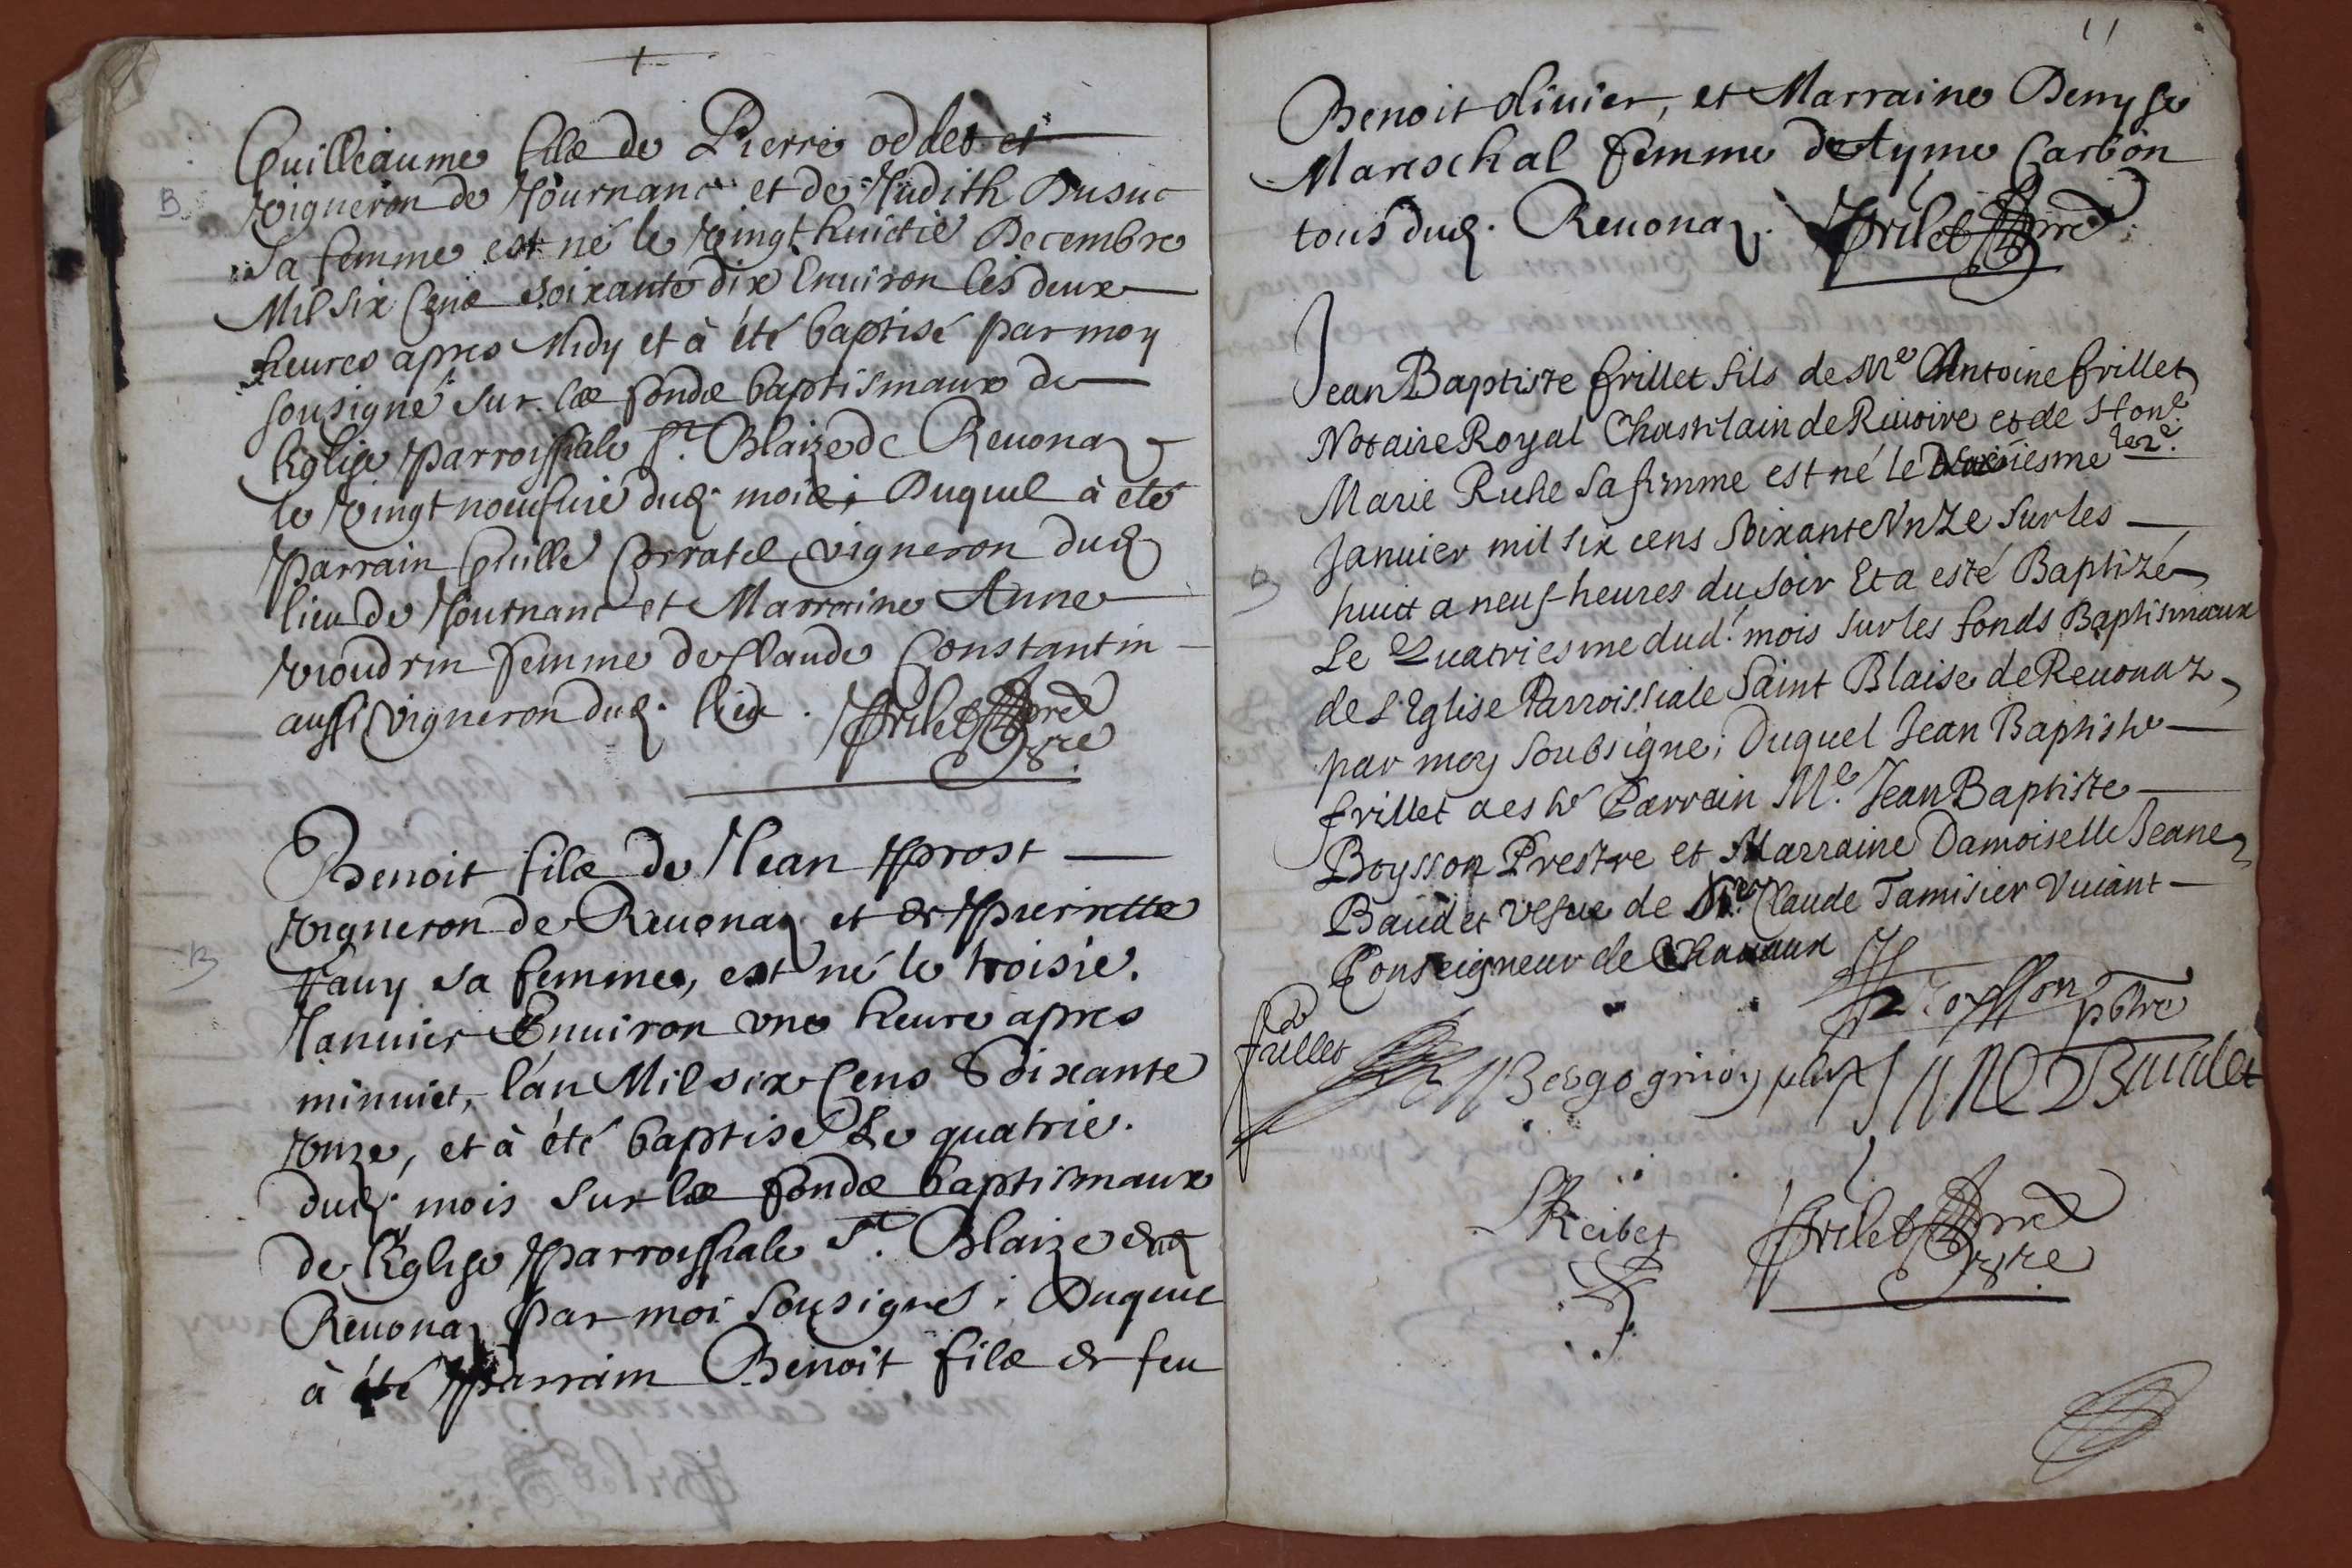 Guilleaume filz de Pierre oddet et
B vigneron de Journanc et de Judith Dusuc
sa femme est né le vingt huictie Decembre
Mil six Cens soixante dix Enuiron les deux
heures apres Midy et à été baptisé par moy
sousigné sur les fonds baptismaux de
Eglise parroissiale St. Blaize de Reuonaz
le vingt noeufuie dud. mois; Duquel à eté
parrain Guille Corratel vigneron dud
lieu de Journanc et Marraine Anne
voudrin femme de Claude Constantin
aussi vigneron dud. lieu. frilet pre
Benoit filz de Jean prost
vigneron de Reuonaz et de pierrette
B fauy sa femme, est né le troisie.
Januier Enuiron vne heure apres
minuict, l'an Mil six Cens Soixante
vnze, et à été baptisé Le quatrie.
dud. mois sur les fonds baptismaux
de Eglise parroissiale St. Blaize de
Reuonaz par moi sousigné; Duquel
à été parrain Benoit filz de feu
11
Benoit oliuier, et Marraine Denyse
Mareschal femme de Ayme Carbon
tous dud. Reuonaz. frilet pre
Jean Baptiste frillet fils de Me Antoine frillet
Notaire Royal Chastelain de Riuoire et de hone
Marie Ruhe sa femme est né le 2e
Januier mil six cens soixante Vnze sur les
B huict a neuf heures du soir Et a esté Baptizé
Le Quatriesme dud. mois sur les fonds Baptismaux
de L'Eglise Parroissiale Saint Blaise de Reuonaz
par moy soubsigné; Duquel Jean Baptiste
frillet a esté Parrain Me. Jean Baptiste
Boysson Prestre et Marraine Damoiselle Jeane
Baudet vefue de Claude Tamisier Viuant
Conseigneur de Chauaux
Boysson pbtre
frillet
JANE Baudet
Reibet frilet pre